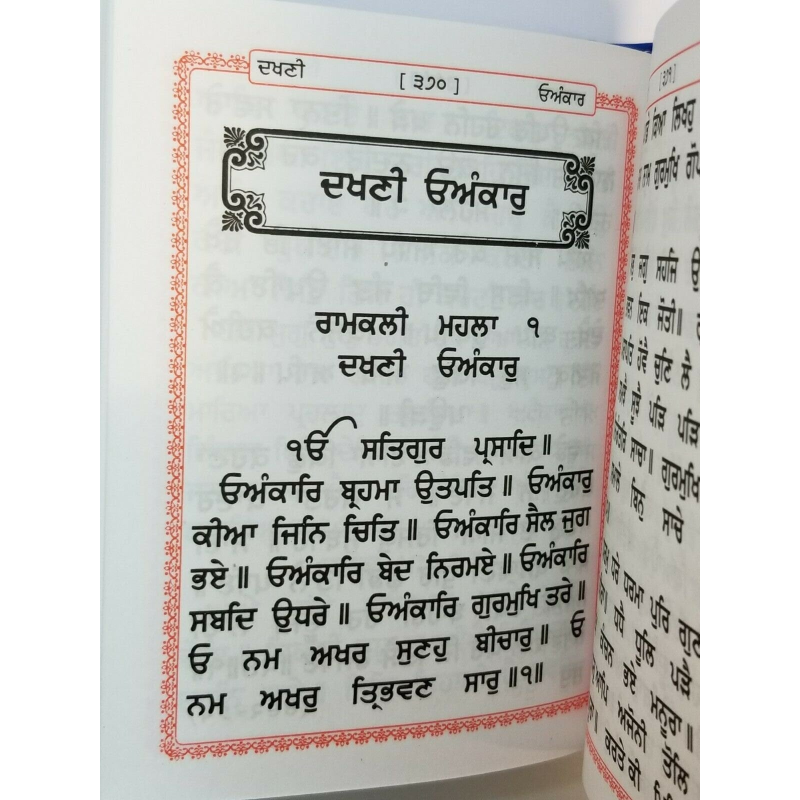 ਦਖਣੀ [ ੩੭੦ ] ਓਅੰਕਾਰ
ਦਖਣੀ ਓਅੰਕਾਰੁ
ਰਾਮਕਲੀ ਮਹਲਾ ੧
ਦਖਣੀ ਓਅੰਕਾਰੁ
੧ਓ ਸਤਿਗੁਰ ਪ੍ਰਸਾਦਿ॥
ਓਅੰਕਾਰਿ ਬ੍ਰਹਮਾ ਉਤਪਤਿ॥ ਓਅੰਕਾਰੁ
ਕੀਆ ਜਿਨਿ ਚਿਤਿ॥ ਓਅੰਕਾਰਿ ਸੈਲ ਜੁਗ
ਭਏ॥ ਓਅੰਕਾਰਿ ਬੇਦ ਨਿਰਮਏ॥ ਓਅੰਕਾਰਿ
ਸਬਦਿ ਉਧਰੇ॥ ਓਅੰਕਾਰਿ ਗੁਰਮੁਖਿ ਤਰੇ॥
ਓ ਨਮ ਅਖਰ ਸੁਣਹੁ ਬੀਚਾਰੁ॥ ਓ
ਨਮ ਅਖਰੁ ਤ੍ਰਿਭਵਣ ਸਾਰੁ॥੧॥
[੩੭੧]
ਕਿਆ ਲਿਖਹੁ
ਨਾਮ ਗੁਰਮੁਖਿ
ਜਗੁ ਸਹਜਿ
ਇਕ ਜੋਤੀ॥
ਹੋਵੈ ਚੁਣਿ ਲੈ
ਸੂਝੈ ਪੜਿ ਪੜਿ
ਸਾਚਾ॥ ਗੁਰਮੁਖਿ
ਬਿਨੁ ਸਾਚੇ
ਧਰੇ ਧਰਮਾ ਪੁਰਿ
ਧੂਲਿ ਪੜੈ
ਭਏ ਮਨੂਰਾ॥
ਆਪਿ ਅਜੋਨੀ ਤੋਲਿ
ਕਰਤੇ ਕੀ